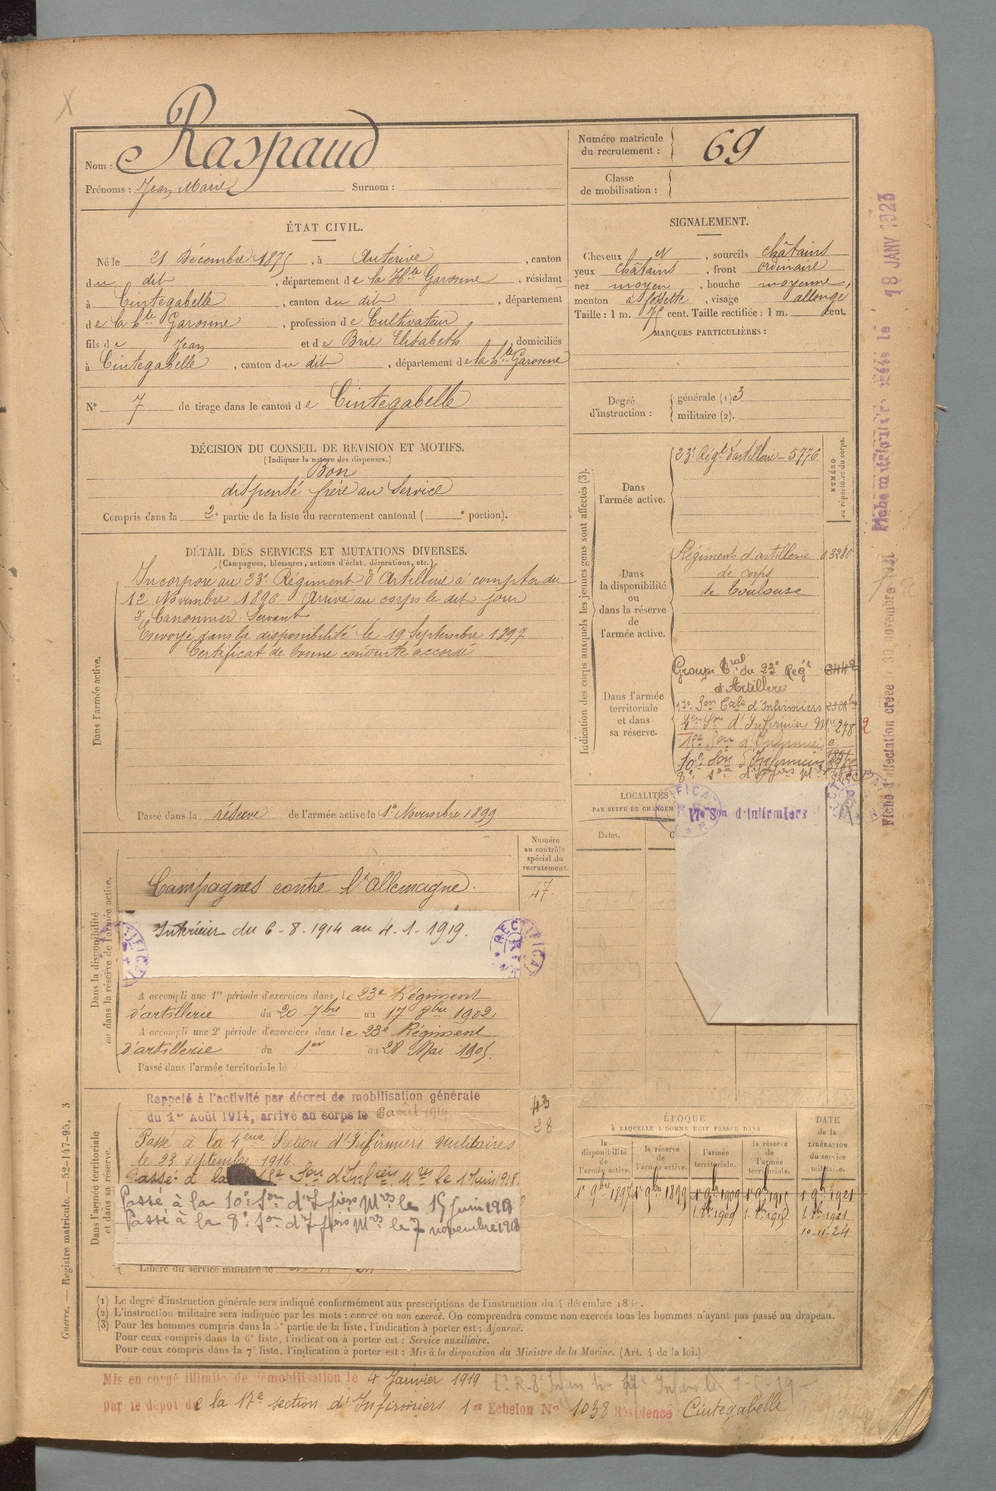 Nom : Raspaud
Prénoms : Jean Marie Surnom :
Numéro matricule du recrutement : 69
Classe de mobilisation :
ÉTAT CIVIL.
Né le 21 Décembre 1875, à Auterive, canton
du dit, département de la Hte Garonne, résidant
à Cintegabelle, canton du dit, département
de la hte Garonne, profession de Cultivateur
fils de Jean et de Brie Elisabeth, domiciliés
à Cintegabelle, canton du dit, département de la hte Garonne
N° 7 de tirage dans le canton de Cintegabelle
DÉCISION DU CONSEIL DE REVISION ET MOTIFS.
(Indiquer la nature des dispenses.)
Bon
dispensé frère au Service
Compris dans la 2e partie de la liste du recrutement cantonal ( e portion).
SIGNALEMENT.
Cheveux et, sourcils châtains
yeux châtains, front ordinaire
nez moyen, bouche moyenne,
menton à fossette, visage allongé
Taille : 1 m. cent. Taille rectifiée : 1 m. cent.
MARQUES PARTICULIÈRES :
Degré d'instruction : générale (1) 3
militaire (2).
DÉTAIL DES SERVICES ET MUTATIONS DIVERSES.
(Campagnes, blessures, actions d'éclat, décorations, etc.)
Dans l'armée active.
Incorporé au 23e Régiment d'Artillerie à compter du
12 Novembre 1896 Arrivé au corps le dit jour
Canonnier Servant
Envoyé dans la disponibilité le 19 Septembre 1897
Certificat de bonne conduite accordé
Passé dans la réserve de l'armée active le 1er Novembre 1899
Indication des corps auxquels les jeunes gens sont affectés (3).
NUMÉRO au répertoire du corps.
Dans l'armée active.
23e Régt d'artillerie - 5776
Dans la disponibilité ou dans la réserve de l'armée active.
Régiment d'artillerie 03280
de corps
de Toulouse
Dans l'armée territoriale et dans sa réserve.
Groupe tral du 23e Régt
d'Artillerie
LOCALITÉS
PAR SUITE DE CHANGEM
Dates.
17e Son d'Infirmiers
Dans la disponibilité ou dans la réserve de l'armée active.
Numéro au contrôle spécial du recrutement.
47
Campagnes contre l'Allemagne.
Intérieur du 6-8-1914 au 4-1-1919.
A accompli une 1re période d'exercices dans le 23e Régiment
d'artillerie du 20 7bre au 17 8bre 1902
A accompli une 2e période d'exercices dans le 23e Régiment
d'artillerie du 1er au 28 Mai 1905
Passé dans l'armée territoriale le
Dans l'armée territoriale et dans sa réserve.
Rappelé à l'activité par décret de mobilisation générale
du 1er Août 1914, arrivé au corps le 6 août 1914
43
28
Passé à la 4ème Section d'Infirmiers militaires
le 23 septembre 1916.
Passé à la
Passé à la 10e Son d'Ifiers Mres le 15 juin 1918
Passé à la 8e Son d'Ifiers Mres le 7 novembre 1918
Libéré du service militaire le
ÉPOQUE
À LAQUELLE L'HOMME DOIT PASSER DANS
la disponibilité de l'armée active.
la réserve de l'armée active.
l'armée territoriale.
la réserve de l'armée territoriale.
DATE de la LIBÉRATION du service militaire.
1er 9bre 1897 1er 9bre 1899 1er 9bre 1909 1er 9bre 1915 1er 9bre 1921
10-11-24
(1) Le degré d'instruction générale sera indiqué conformément aux prescriptions de l'instruction du 4 décembre 18
(2) L'instruction militaire sera indiquée par les mots : exercé ou non exercé. On comprendra comme non exercés tous les hommes n'ayant pas passé au drapeau.
(3) Pour les hommes compris dans la 5e partie de la liste, l'indication à porter est : Ajourné.
Pour ceux compris dans la 6e liste, l'indication à porter est : Service auxiliaire.
Pour ceux compris dans la 7e liste, l'indication à porter est : Mis à la disposition du Ministre de la Marine. (Art. 4 de la loi.)
Mis en congé illimité de démobilisation le 4 Janvier 1919
par le dépôt de la 17e section d'Infirmiers 1er Echelon N° 1038 Résidence Cintegabelle
Guerre. — Registre matricule. — 52-147-95. 3
18 JANV 1923